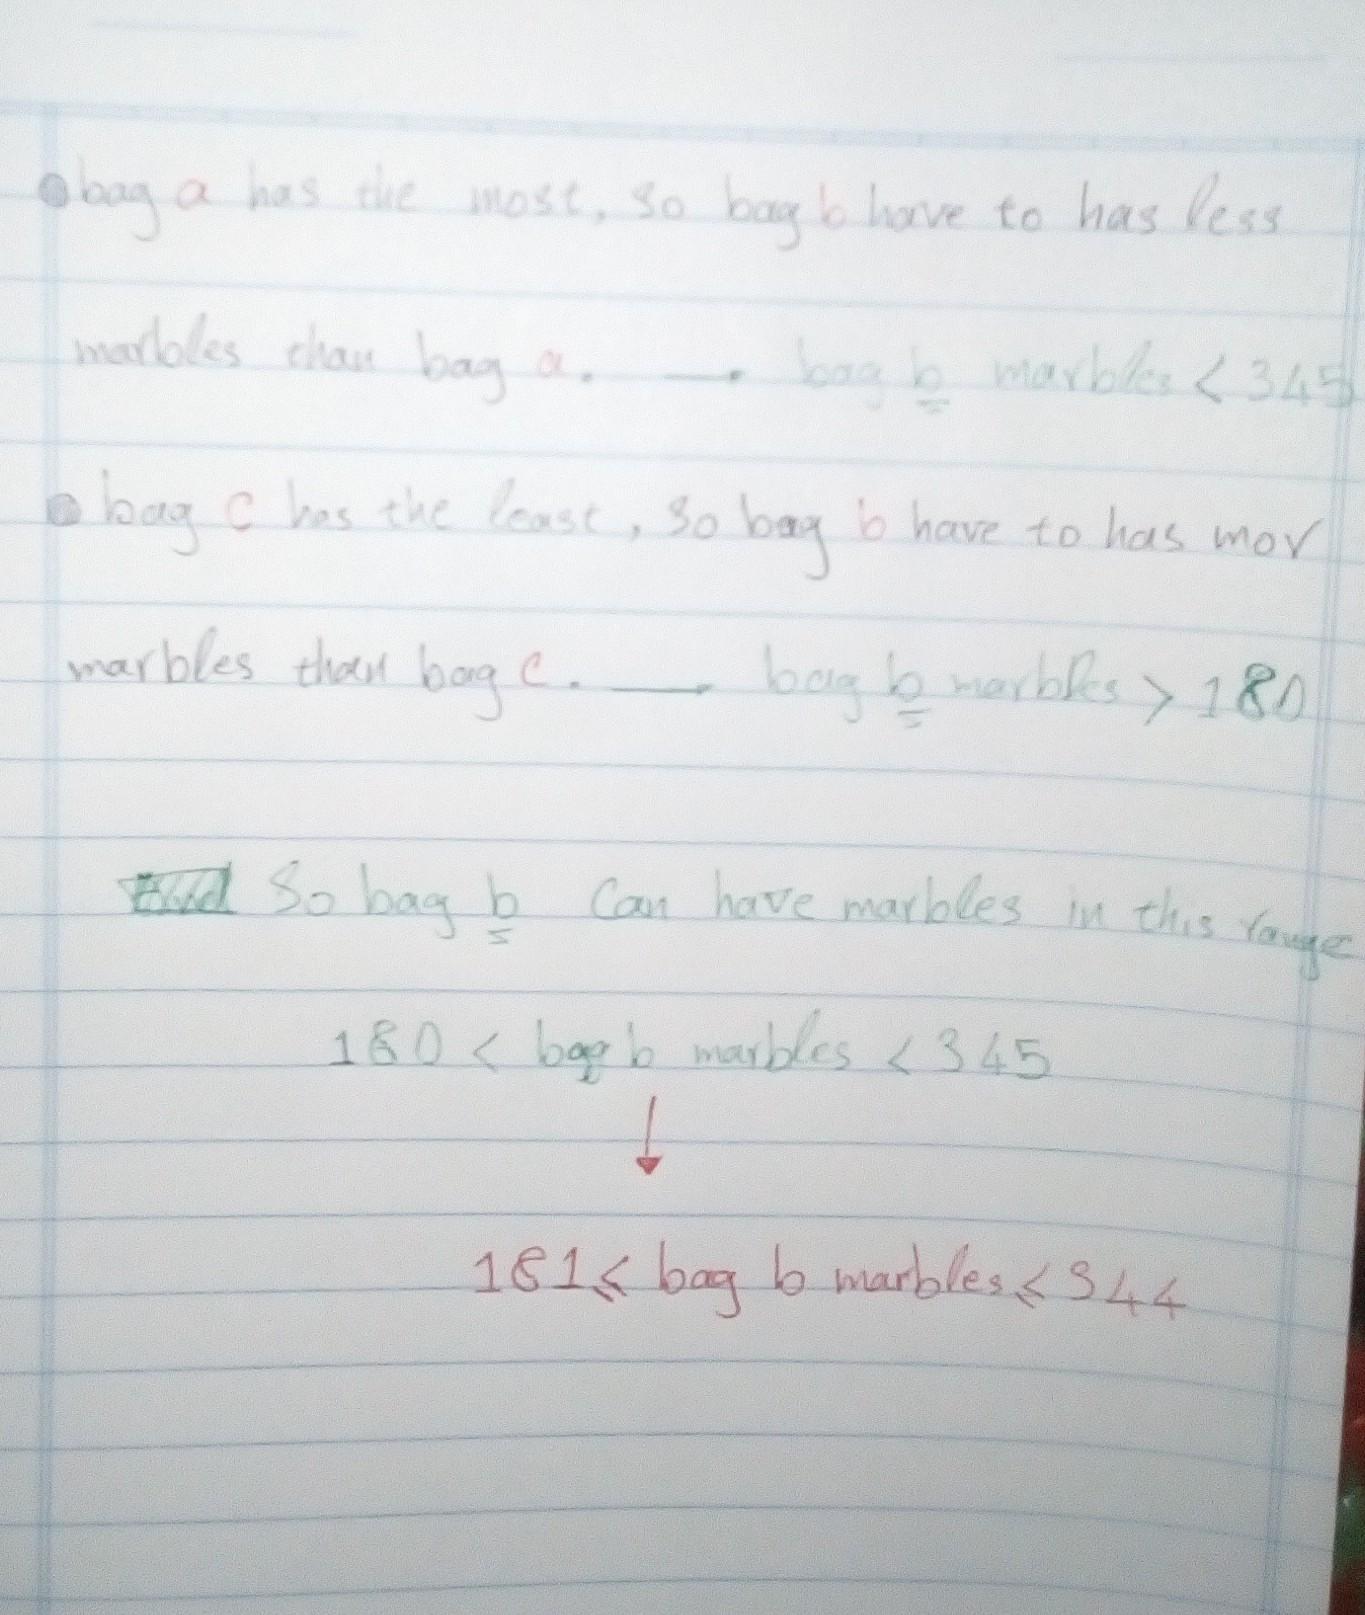 bag a has the most, so bag b have to has less
marbles than bag a. → bag b marbles < 345
bag c has the least, so bag b have to has mor
marbles than bag c. → bag b marbles > 180
So bag b Can have marbles in this range
180 < bag b marbles < 345
↓
181 ≤ bag b marbles ≤ 344